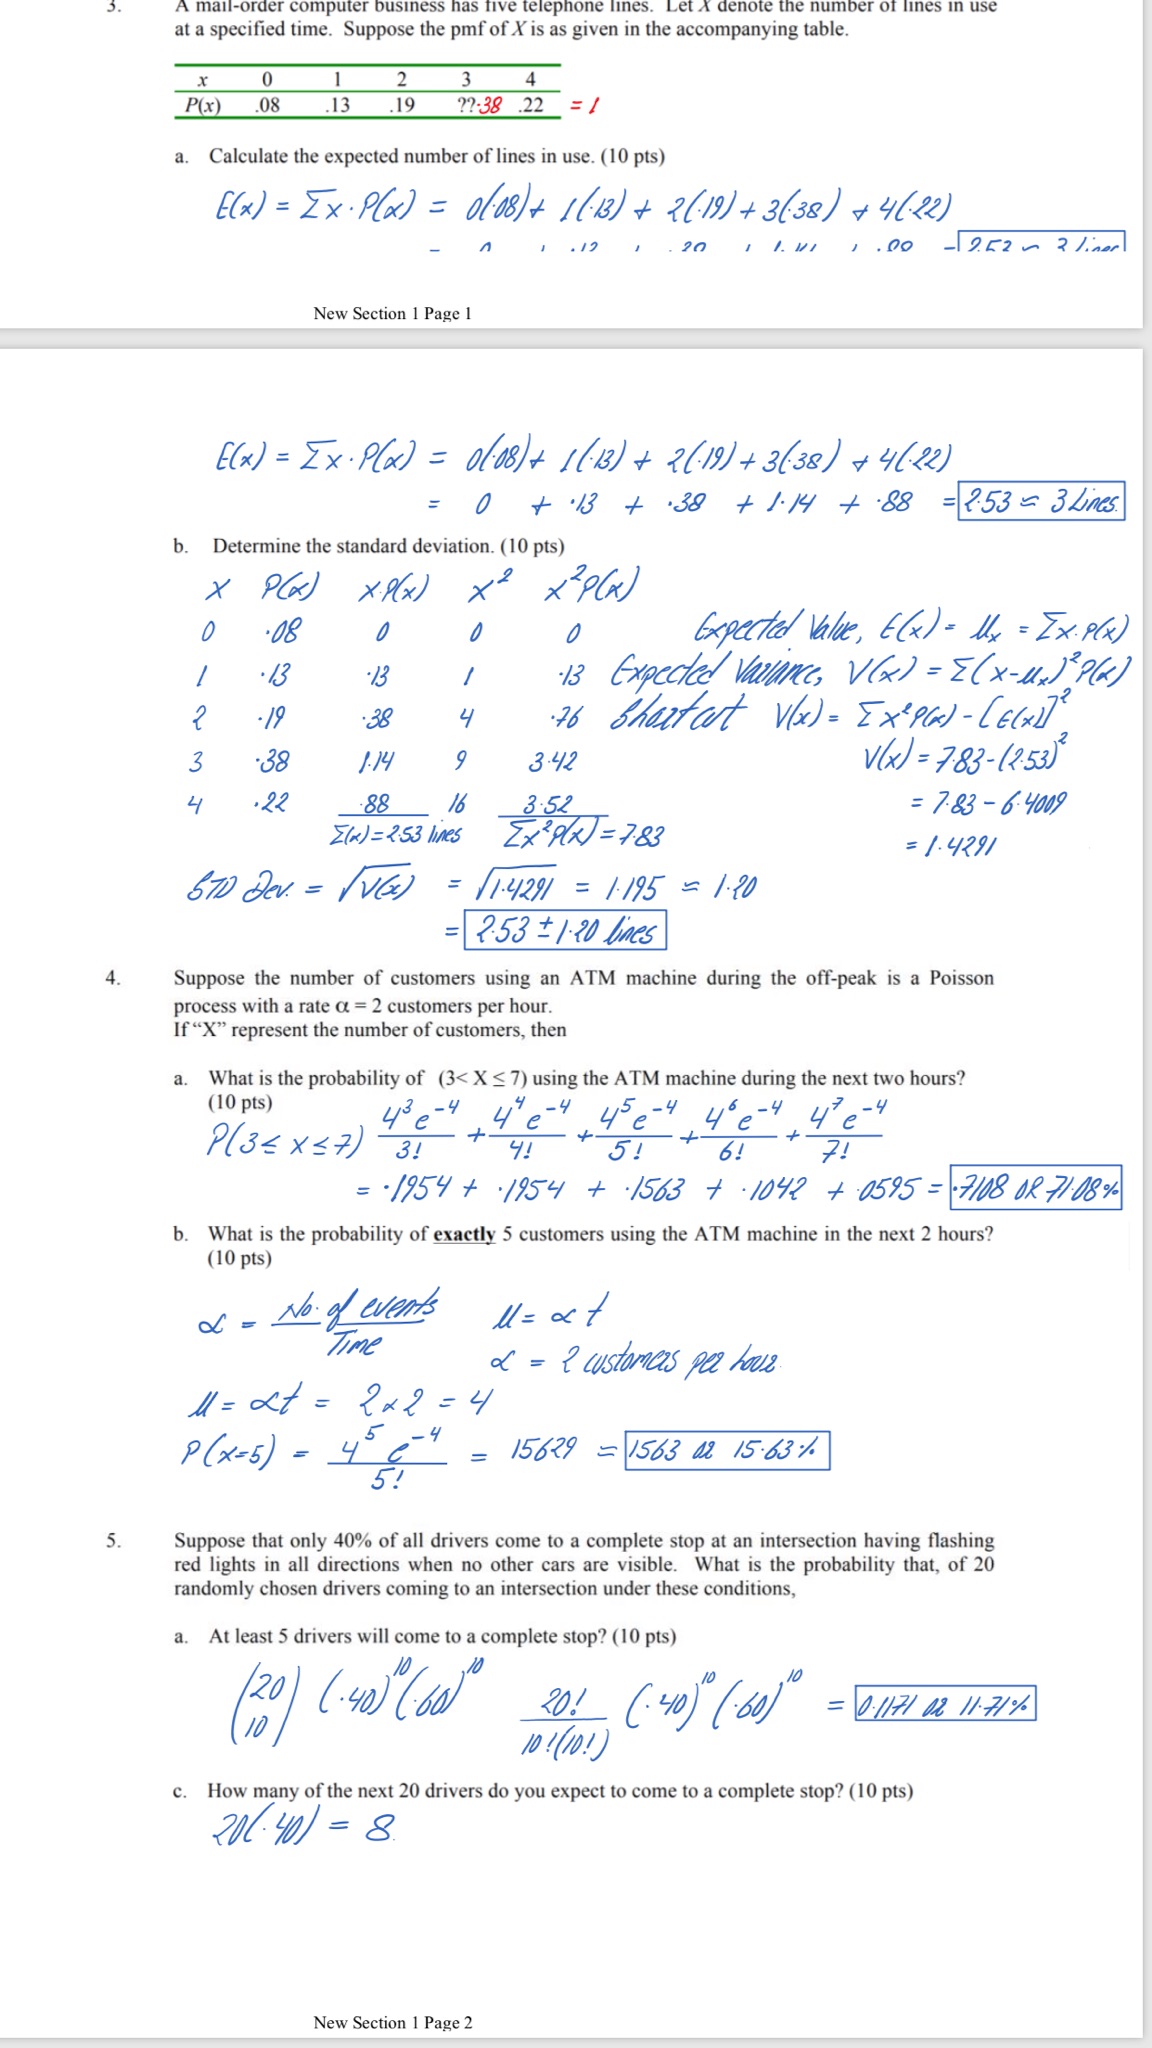 3. A mail-order computer business has five telephone lines. Let X denote the number of lines in use
at a specified time. Suppose the pmf of X is as given in the accompanying table.
x 0 1 2 3 4
P(x) .08 .13 .19 ??.38 .22 = 1
a. Calculate the expected number of lines in use. (10 pts)
E(x) = Σx·P(x) = 0(.08) + 1(.13) + 2(.19) + 3(.38) + 4(.22)
New Section 1 Page 1
E(x) = Σx·P(x) = 0(.08) + 1(.13) + 2(.19) + 3(.38) + 4(.22)
= 0 + .13 + .38 + 1.14 + .88 = 2.53 ≈ 3 Lines.
b. Determine the standard deviation. (10 pts)
x P(x) x.P(x) x² x²P(x)
0 .08 0 0 0 Expected Value, E(x) = μx = Σx.P(x)
1 .13 .13 1 .13 Expected Variance, V(x) = Σ(x-μx)²P(x)
2 .19 .38 4 .76 Shortcut V(x) = Σx²P(x) - [E(x)]²
3 .38 1.14 9 3.42 V(x) = 7.83 - (2.53)²
4 .22 .88 16 3.52 = 7.83 - 6.4009
Σ(x) = 2.53 lines Σx²P(x) = 7.83 = 1.4291
STD Dev. = √V(x) = √1.4291 = 1.195 ≈ 1.20
= 2.53 ± 1.20 lines
4. Suppose the number of customers using an ATM machine during the off-peak is a Poisson
process with a rate α = 2 customers per hour.
If “X” represent the number of customers, then
a. What is the probability of (3< X ≤ 7) using the ATM machine during the next two hours?
(10 pts)
P(3 ≤ x ≤ 7) 4³e⁻⁴/3! + 4⁴e⁻⁴/4! + 4⁵e⁻⁴/5! + 4⁶e⁻⁴/6! + 4⁷e⁻⁴/7!
= .1954 + .1954 + .1563 + .1042 + .0595 = .7108 OR 71.08%
b. What is the probability of exactly 5 customers using the ATM machine in the next 2 hours?
(10 pts)
α = No. of events/Time μ = αt
α = 2 customers per hour.
μ = αt = 2×2 = 4
P(x=5) = 4⁵e⁻⁴/5! = 15629 ≈ 1563 or 15.63%
5. Suppose that only 40% of all drivers come to a complete stop at an intersection having flashing
red lights in all directions when no other cars are visible. What is the probability that, of 20
randomly chosen drivers coming to an intersection under these conditions,
a. At least 5 drivers will come to a complete stop? (10 pts)
(20 10) (.40)¹⁰(.60)¹⁰ 20!/10!(10!) (.40)¹⁰(.60)¹⁰ = 0.1171 or 11.71%
c. How many of the next 20 drivers do you expect to come to a complete stop? (10 pts)
20(.40) = 8.
New Section 1 Page 2